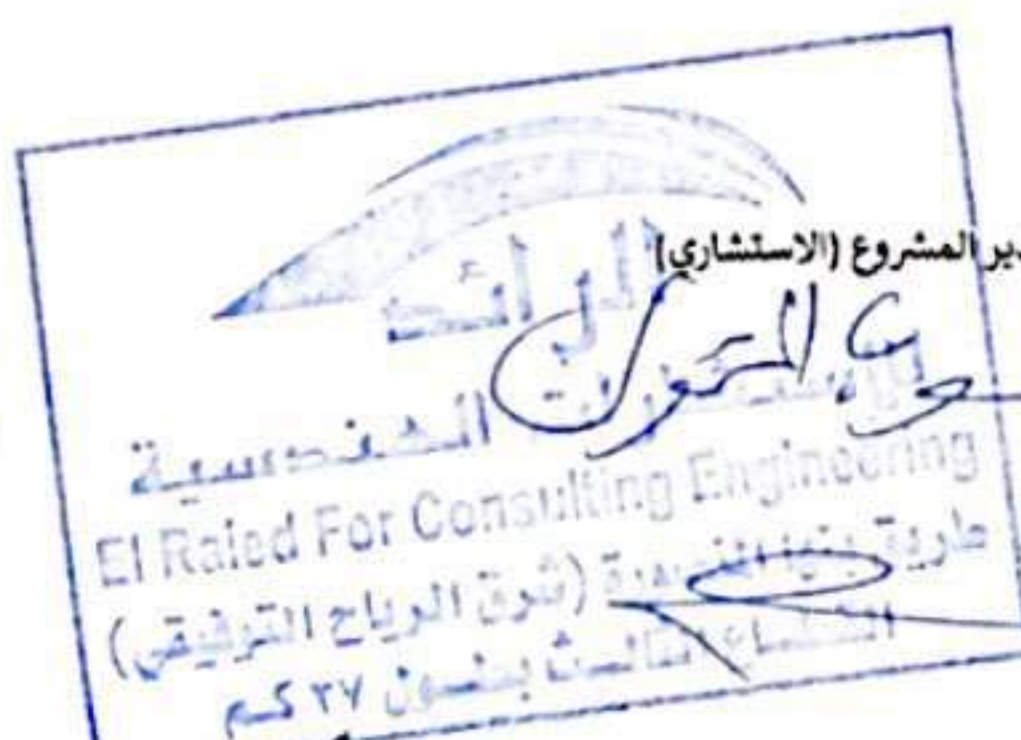 ير المشروع (الاستشاري)
الرائد
للاستشارات الهندسية
El Raied For Consulting Engineering
طريق بنها المنصورة (شرق الرياح التوفيقي)
القطاع الثالث بطول ٢٧ كم